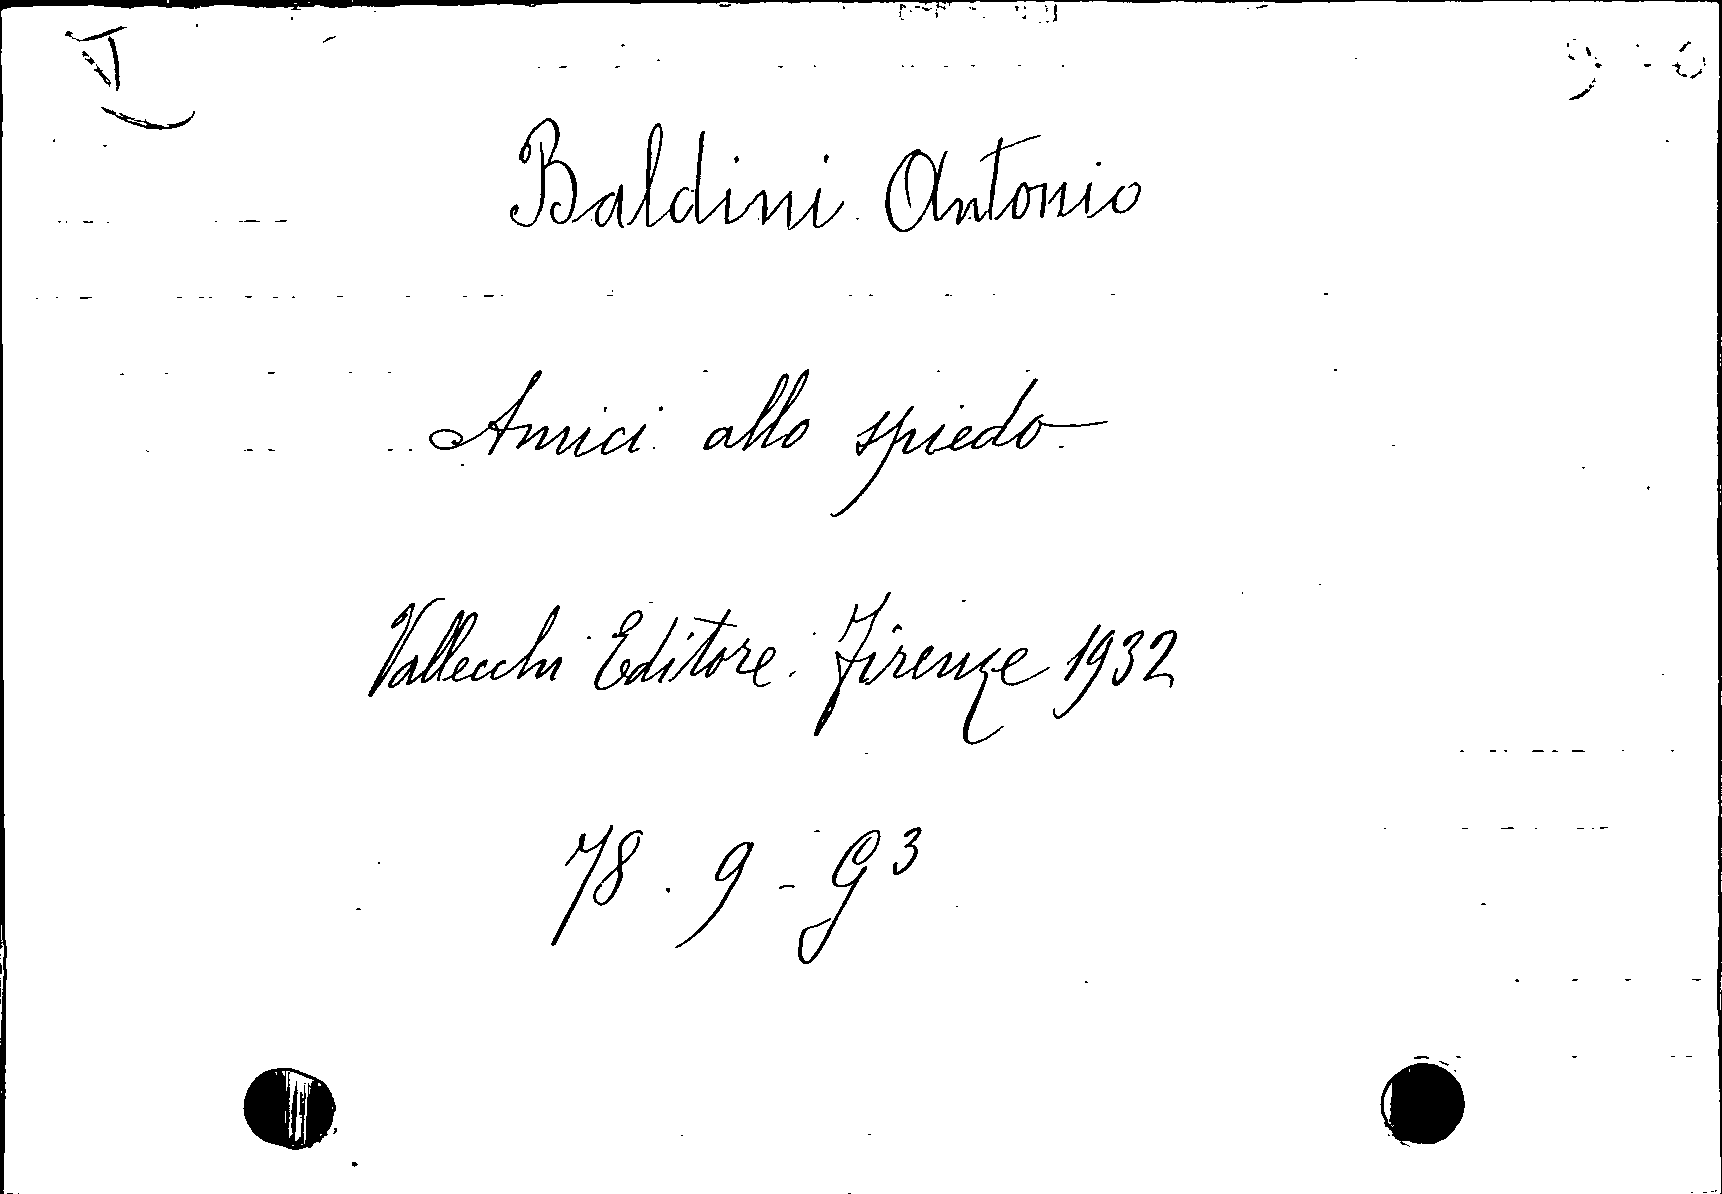 Baldini Antonio
Amici allo spiedo
Vallecchi Editore. Firenze 1932
78. 9 - G³